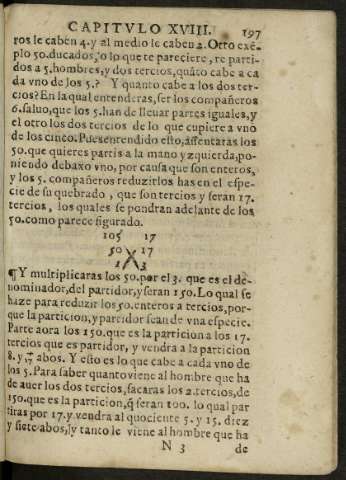 CAPITVLO XVIII. 197
ros le caben 4. y al medio le caben 2. Otro exē-
plo 50. ducados, o lo que te pareciere, re parti-
dos a 5. hombres, y dos tercios, quāto cabe a ca
da vno de los 5.? Y quanto cabe a los dos ter-
cios? En la qual entenderas, ser los compañeros
6. saluo, que los 5. han de lleuar partes iguales, y
el otro los dos tercios de lo que cupiere a vno
de los cinco. Pues entendido esto, assentaras los
50. que quieres partir a la mano yzquierda, po-
niendo debaxo vno, por causa que son enteros,
y los 5. compañeros reduzirlos has en el espe-
cie de su quebrado, que son tercios y seran 17.
tercios, los quales se pondran adelante de los
50. como parece figurado.
17
50 17
1 3
¶Y multiplicaras los 50. por el 3. que es el de-
nominador, del partidor, y seran 150. Lo qual se
haze para reduzir los 50. enteros a tercios, por-
que la particion, y partidor sean de vna especie.
Parte aora los 150. que es la particion a los 17.
tercios que es partidor, y vendra a la particion
8. y abos. Y esto es lo que cabe a cada vno de
los 5. Para saber quanto viene al hombre que ha
de auer los dos tercios, sacaras los 2. tercios, de
150. que es la particion, q̃ seran 100. lo qual par
tiras por 17. y vendra al quociente 5. y 15. diez
y siete abos, y tanto le viene al hombre que ha
N 3 de